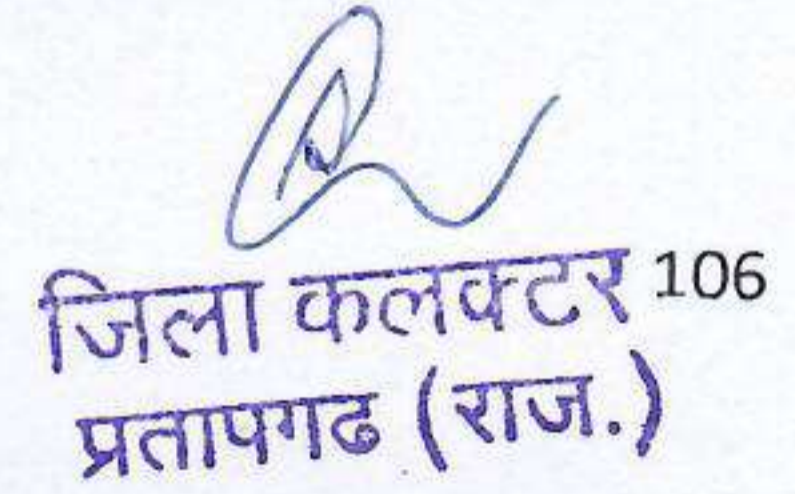 जिला कलक्टर 106
प्रतापगढ (राज.)